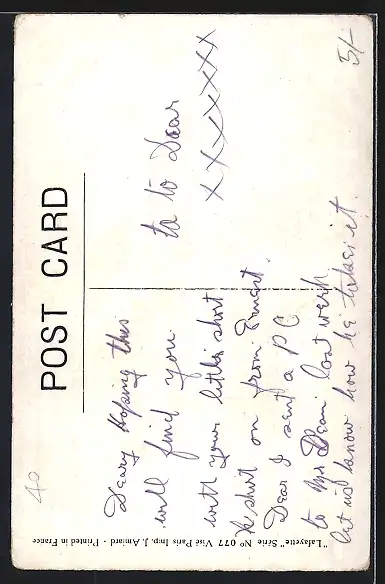 POST CARD
Deary Hoping this
will find you
with your little short
shirt on from Ernest.
Dear I sent a PC
to Mr Dean last week
let us know how he takes it.
ta to Dear
XXXXXXX
5/-
40
"Lafayette" Série Nº 077 Visé Paris Imp. J. Amiard - Printed in France